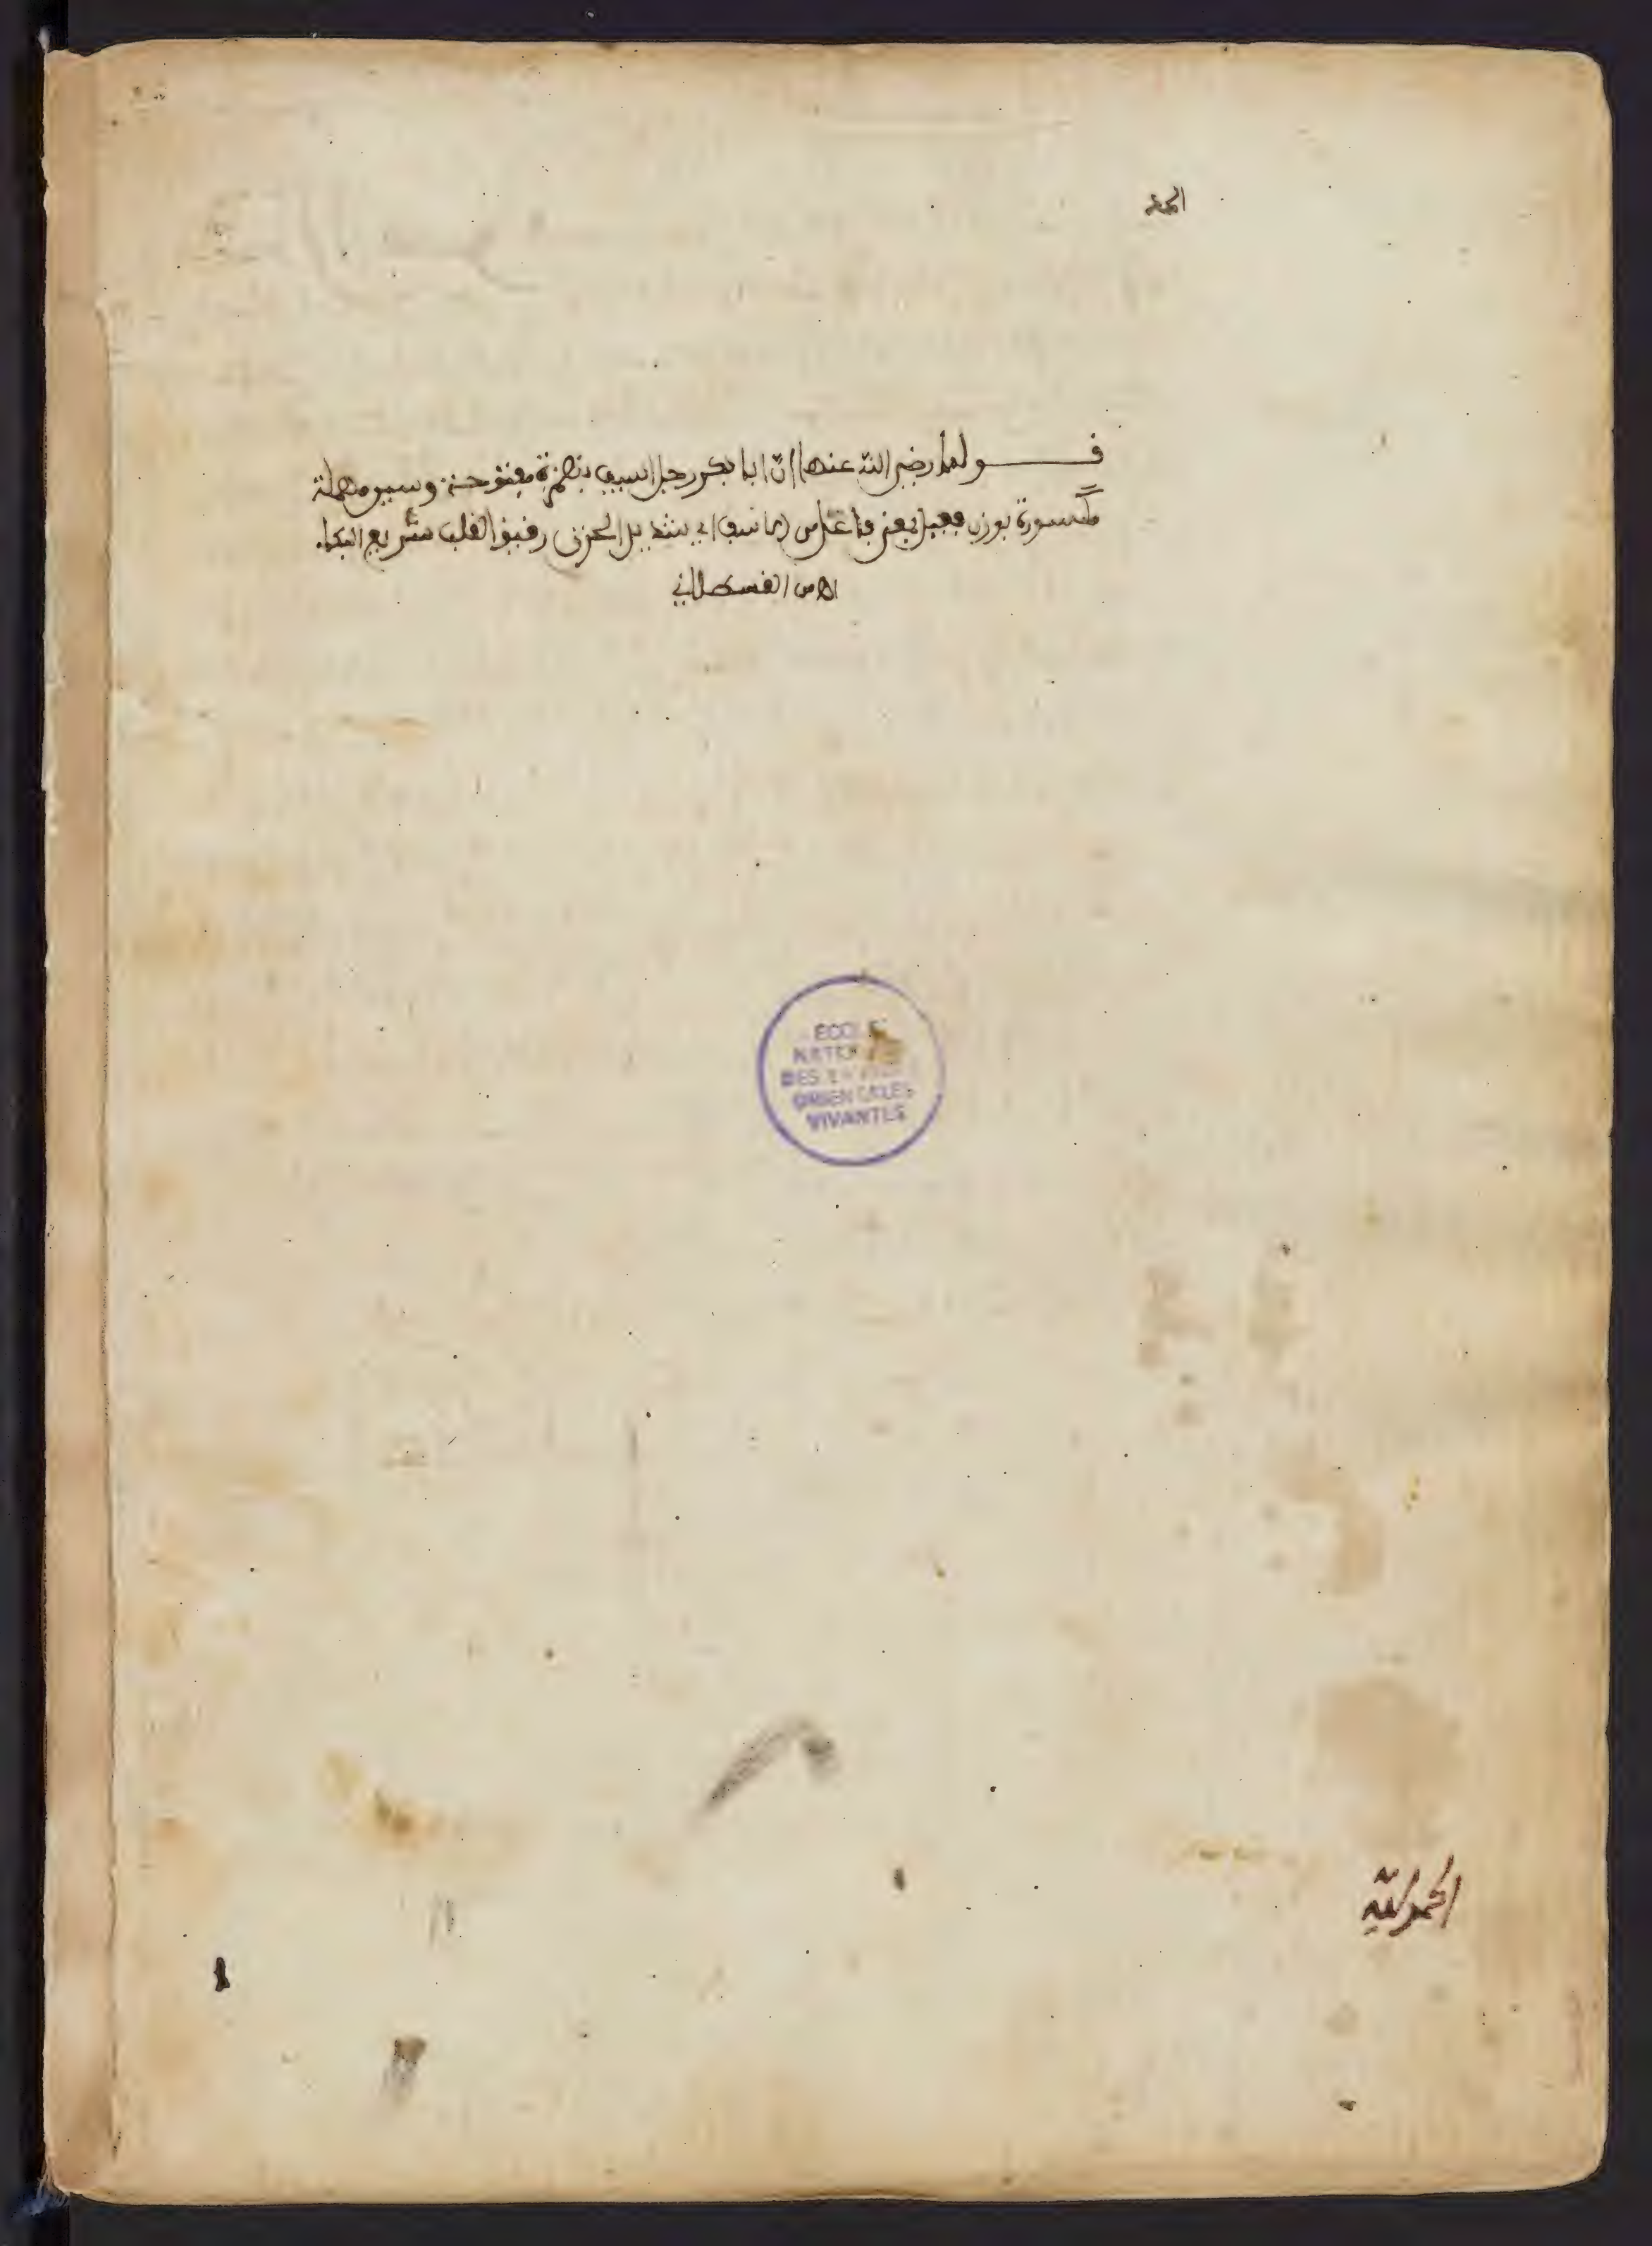 الحمد
قولها رضي الله عنها ان ابا بكر رجل اسيف بهمزة مفتوحة وسين مهملة
مكسورة بوزن فعيل بمعنى فاعل من الاسف اي شديد الحزن رقيق القلب سريع البكاء
اه من القسطلاني
ECOLE
NATLE
DES LANGUES
ORIENTALES
VIVANTES
الحمد لله